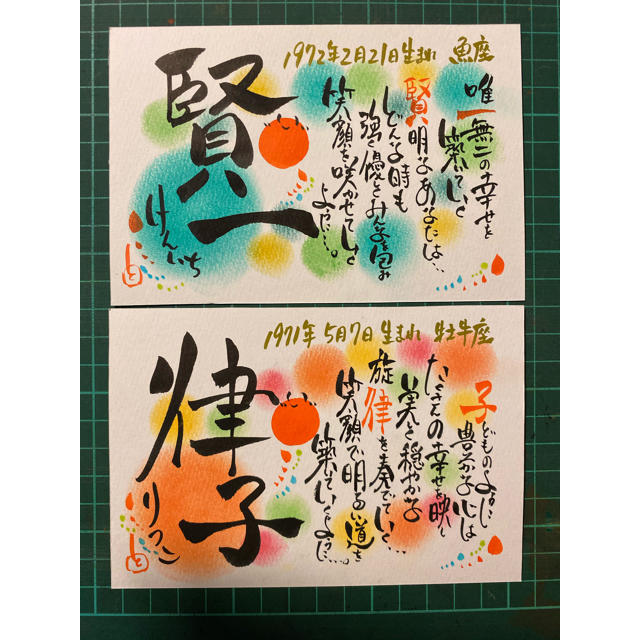 1972年2月21日生まれ 魚座
賢一
けんいち
唯一無二の幸せを
築いていく
賢明なあなたは…
どんな時も
強く優しくみんなを包み
笑顔を咲かせていけ
ように…。
と
1971年5月7日生まれ 牡牛座
律子
りつこ
子どものように
豊かな心は
たくさんの幸せを映し
美しく穏やかな
旋律を奏でていく…
笑顔で明るい道を
築いていくように…。
と